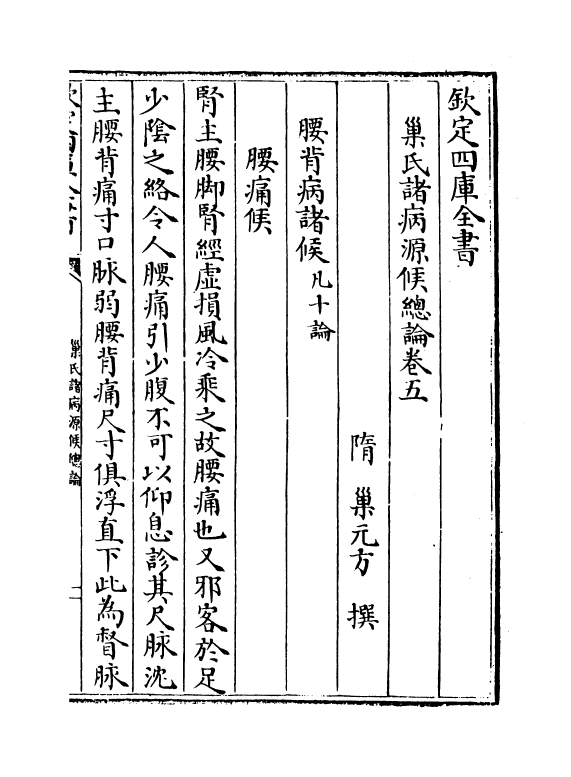 欽定四庫全書
巢氏諸病源候總論卷五
隋 巢元方 撰
腰背病諸候凡十論
腰痛候
腎主腰脚腎經虛損風冷乘之故腰痛也又邪客於足
少陰之絡令人腰痛引少腹不可以仰息診其尺脉沈
主腰背痛寸口脉弱腰背痛尺寸俱浮直下此為督脉
巢氏諸病源候總論